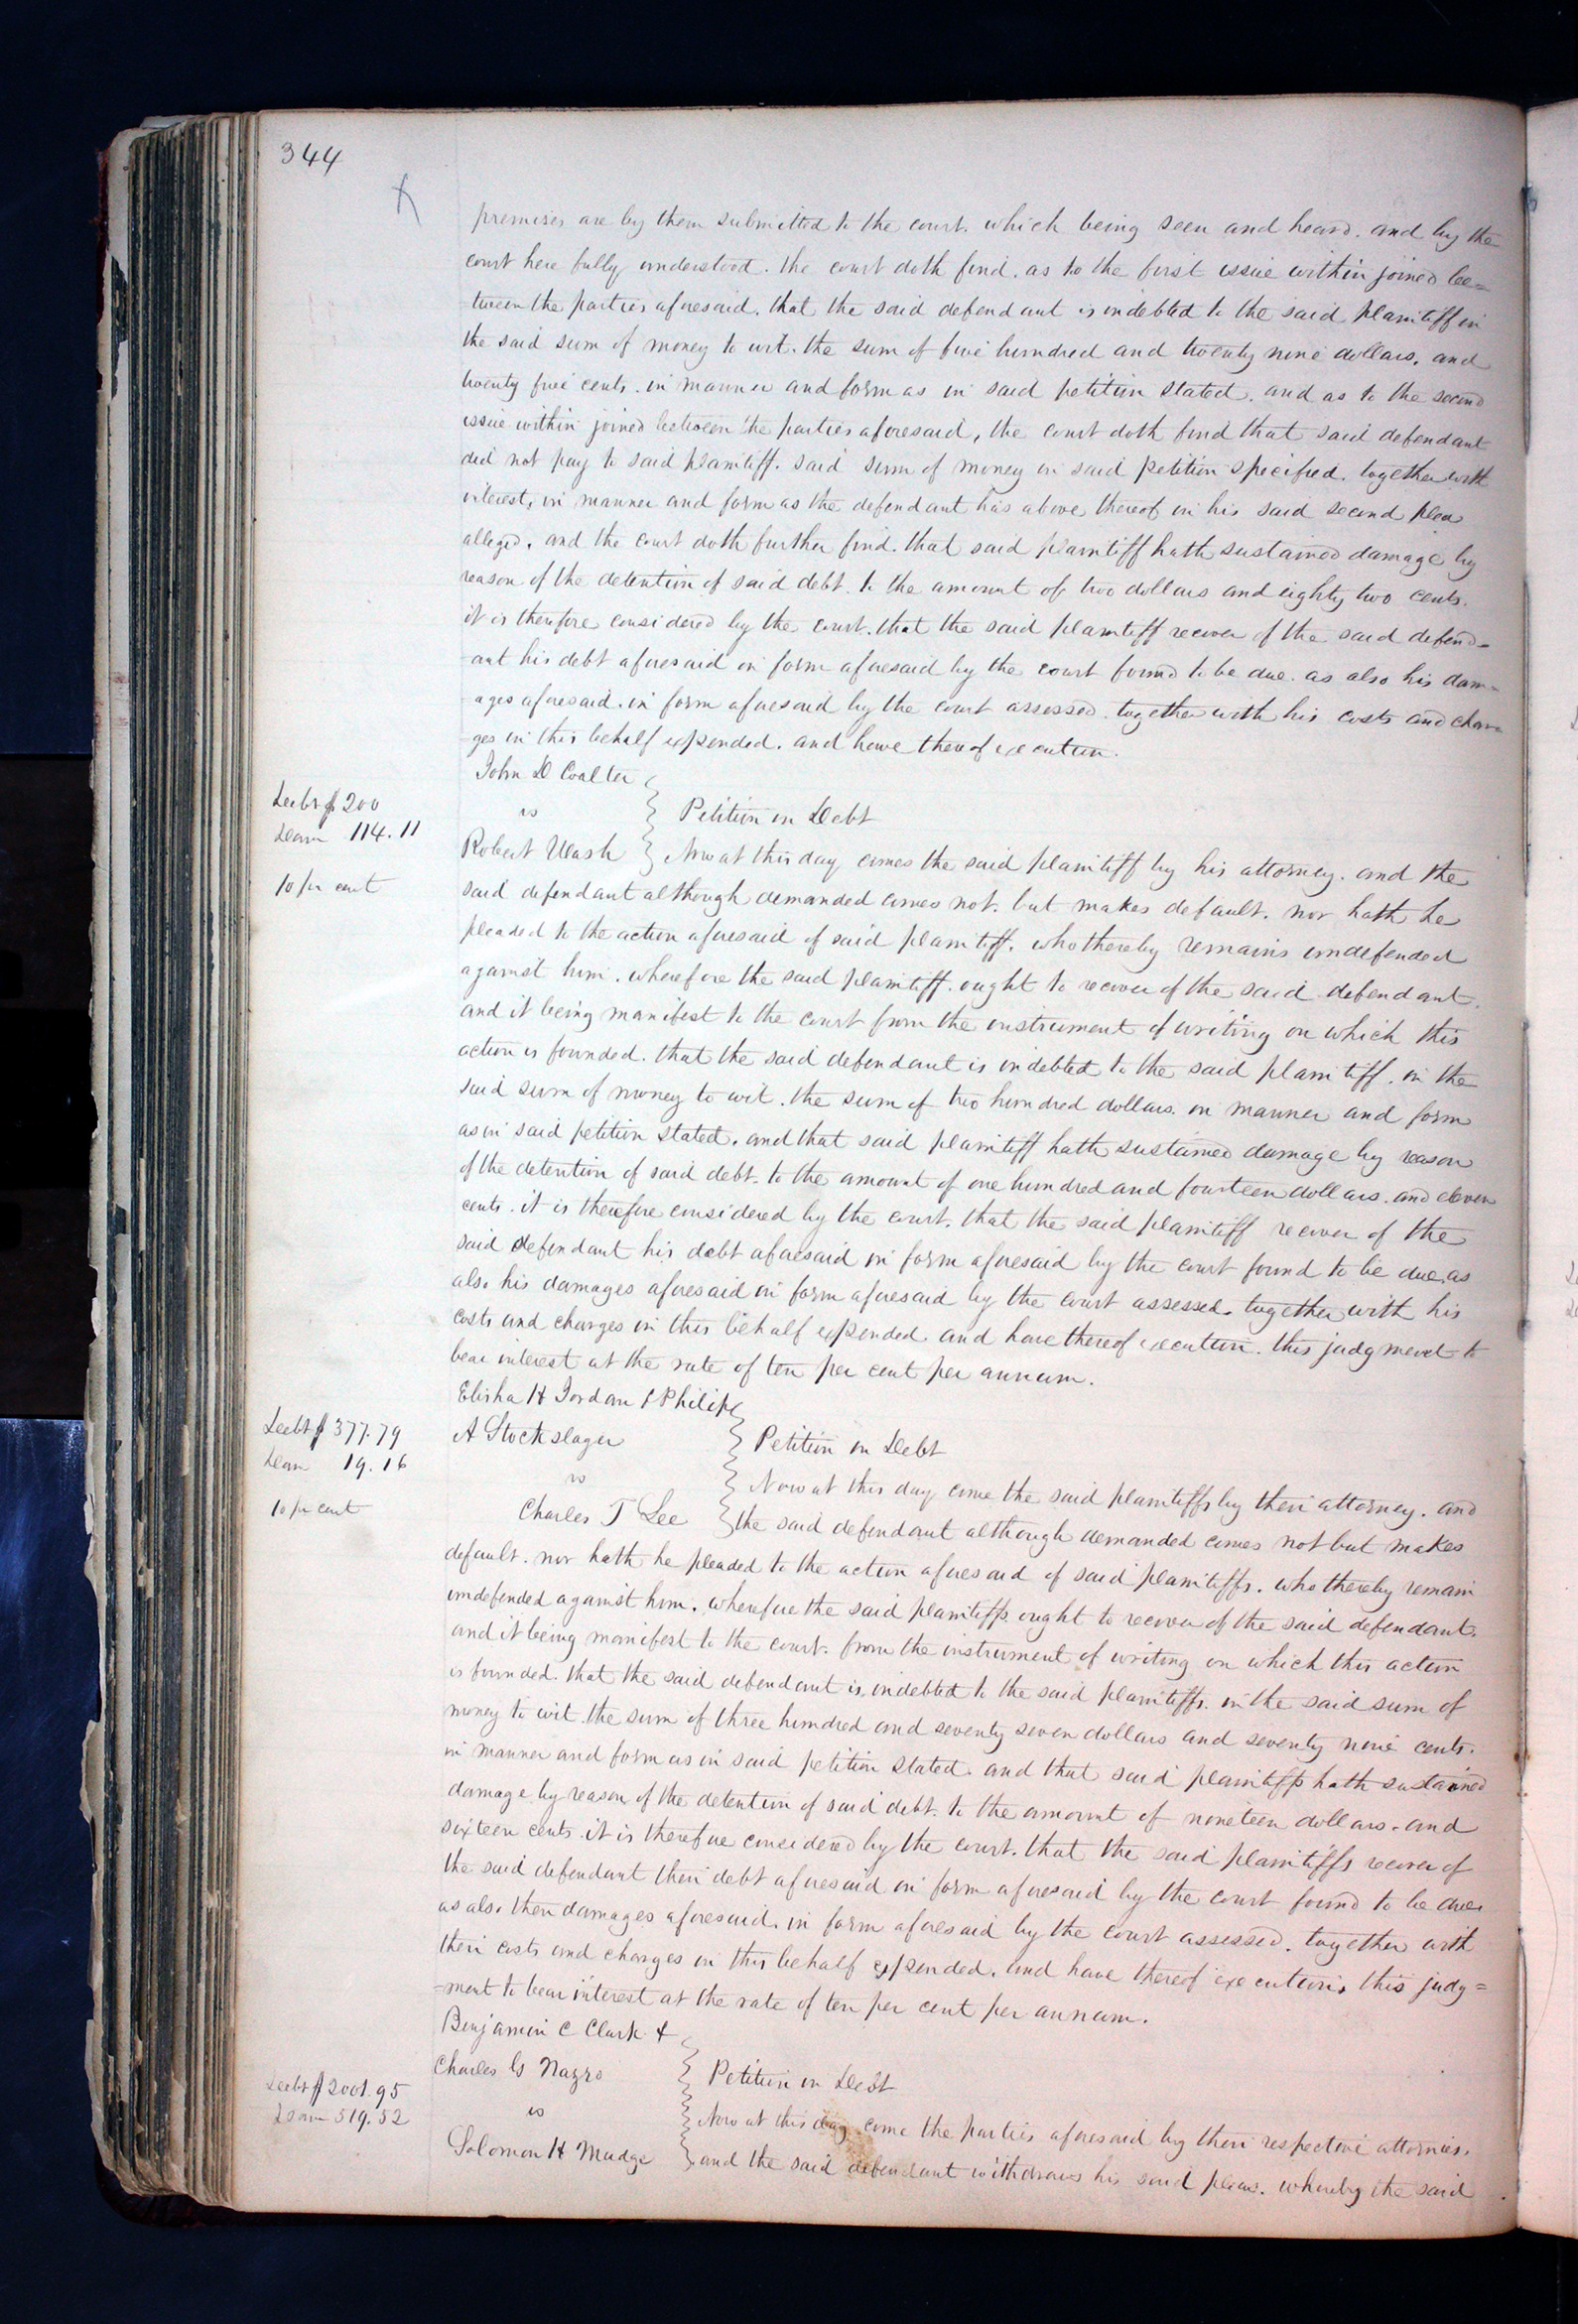 344
premises are by them submitted to the court. which being seen and heard. and by the
court here fully understood. the court doth find. as to the first issue within joined be=
tween the parties aforesaid. that the said defendant is indebted to the said plaintiff in
the said sum of money to wit. the sum of five hundred and twenty nine dollars. and
twenty five cents. in manner and form as in said petition stated. and as to the second
issue within joined between the parties aforesaid, the court doth find that said defendant
did not pay to said plaintiff. said sum of money in said petition specified. together with
interest, in manner and form as the defendant has above thereof in his said second plea
alleged. and the court doth further find. that said plaintiff hath sustained damage by
reason of the detention of said debt. to the amount of two dollars and eighty two cents.
it is therefore considered by the court. that the said plaintiff recover of the said defend-
ant his debt aforesaid in form aforesaid by the court found to be due. as also his dam-
ages aforesaid. in form aforesaid by the court assessed. together with his costs and char-
ges in this behalf expended. and have thereof execution.
John D Coalter
Debt $ 200
vs
Petition in Debt
Dam 114.11
Robert Wash
Now at this day comes the said plaintiff by his attorney. and the
10 per cent
said defendant although demanded comes not. but makes default. nor hath he
pleaded to the action aforesaid of said plaintiff. who thereby remains undefended
against him. wherefore the said plaintiff. ought to recover of the said defendant.
and it being manifest to the court from the instrument of writing on which this
action is founded. that the said defendant is indebted to the said plaintiff. in the
said sum of money to wit. the sum of two hundred dollars. in manner and form
as in said petition stated. and that said plaintiff hath sustained damage by reason
of the detention of said debt. to the amount of one hundred and fourteen dollars. and eleven
cents. it is therefore considered by the court. that the said plaintiff recover of the
said defendant his debt aforesaid in form aforesaid by the court found to be due. as
also his damages aforesaid in form aforesaid by the court assessed. together with his
costs and charges in this behalf expended. and have thereof execution. this judgment to
bear interest at the rate of ten per cent per annum.
Elisha H Jordan & Philip
Debt $ 377.79
A Stockslager
Petition in Debt
Dam 19.16
vs
Now at this day come the said plaintiffs by their attorney. and
10 per cent
Charles T Lee
the said defendant although demanded comes not but makes
default. nor hath he pleaded to the action aforesaid of said plaintiffs. who thereby remain
undefended against him. wherefore the said plaintiffs ought to recover of the said defendant.
and it being manifest to the court. from the instrument of writing on which this action
is founded. that the said defendant is indebted to the said plaintiffs. in the said sum of
money to wit. the sum of three hundred and seventy seven dollars and seventy nine cents.
in manner and form as in said petition stated. and that said plaintiffs hath sustained
damage by reason of the detention of said debt. to the amount of nineteen dollars. and
sixteen cents. it is therefore considered by the court. that the said plaintiffs recover of
the said defendant their debt aforesaid in form aforesaid by the court found to be due.
as also their damages aforesaid. in form aforesaid by the court assessed. together with
their costs and charges in this behalf expended. and have thereof execution. this judg=
=ment to bear interest at the rate of ten per cent per annum.
Benjamin C Clark &
Charles G Nazro
Petition in Debt
Debt $ 2001.95
vs
Dam 519.52
Now at this day come the parties aforesaid by their respective attornies.
Solomon H Mudge
and the said defendant withdraws his said pleas. whereby the said